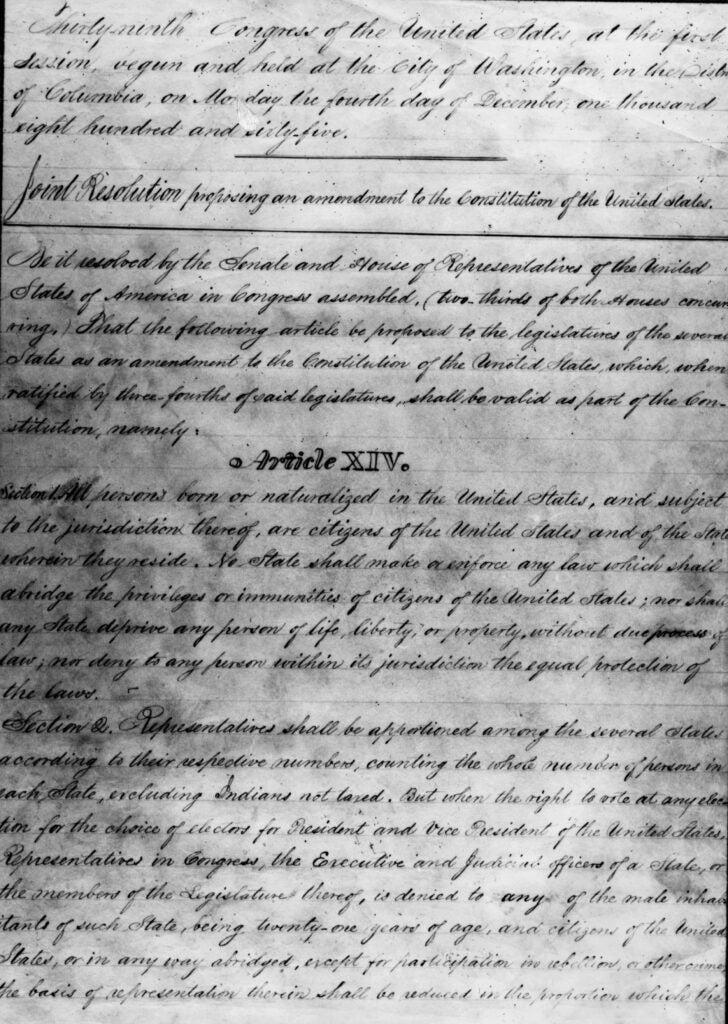 Thirty-ninth Congress of the United States, at the first
Session, begun and held at the City of Washington, in the Distri
of Columbia, on Monday the fourth day of December, one thousand
eight hundred and sixty-five.
Joint Resolution proposing an amendment to the Constitution of the United States.
Be it resolved by the Senate and House of Representatives of the United
States of America in Congress assembled, (two-thirds of both Houses concur-
ring,) That the following article be proposed to the legislatures of the several
States as an amendment to the Constitution of the United States, which, when
ratified by three-fourths of said legislatures, shall be valid as part of the Con-
stitution, namely:
Article XIV.
Section 1. All persons born or naturalized in the United States, and subject
to the jurisdiction thereof, are citizens of the United States and of the State
wherein they reside. No State shall make or enforce any law which shall
abridge the privileges or immunities of citizens of the United States; nor shall
any State deprive any person of life, liberty, or property, without due process of
law; nor deny to any person within its jurisdiction the equal protection of
the laws.
Section 2. Representatives shall be apportioned among the several States
according to their respective numbers, counting the whole number of persons in
each State, excluding Indians not taxed. But when the right to vote at any elec-
tion for the choice of electors for President and Vice President of the United States,
Representatives in Congress, the Executive and Judicial officers of a State, or
the members of the Legislature thereof, is denied to any of the male inhab-
itants of such State, being twenty-one years of age, and citizens of the United
States, or in any way abridged, except for participation in rebellion, or other crime,
the basis of representation therein shall be reduced in the proportion which the